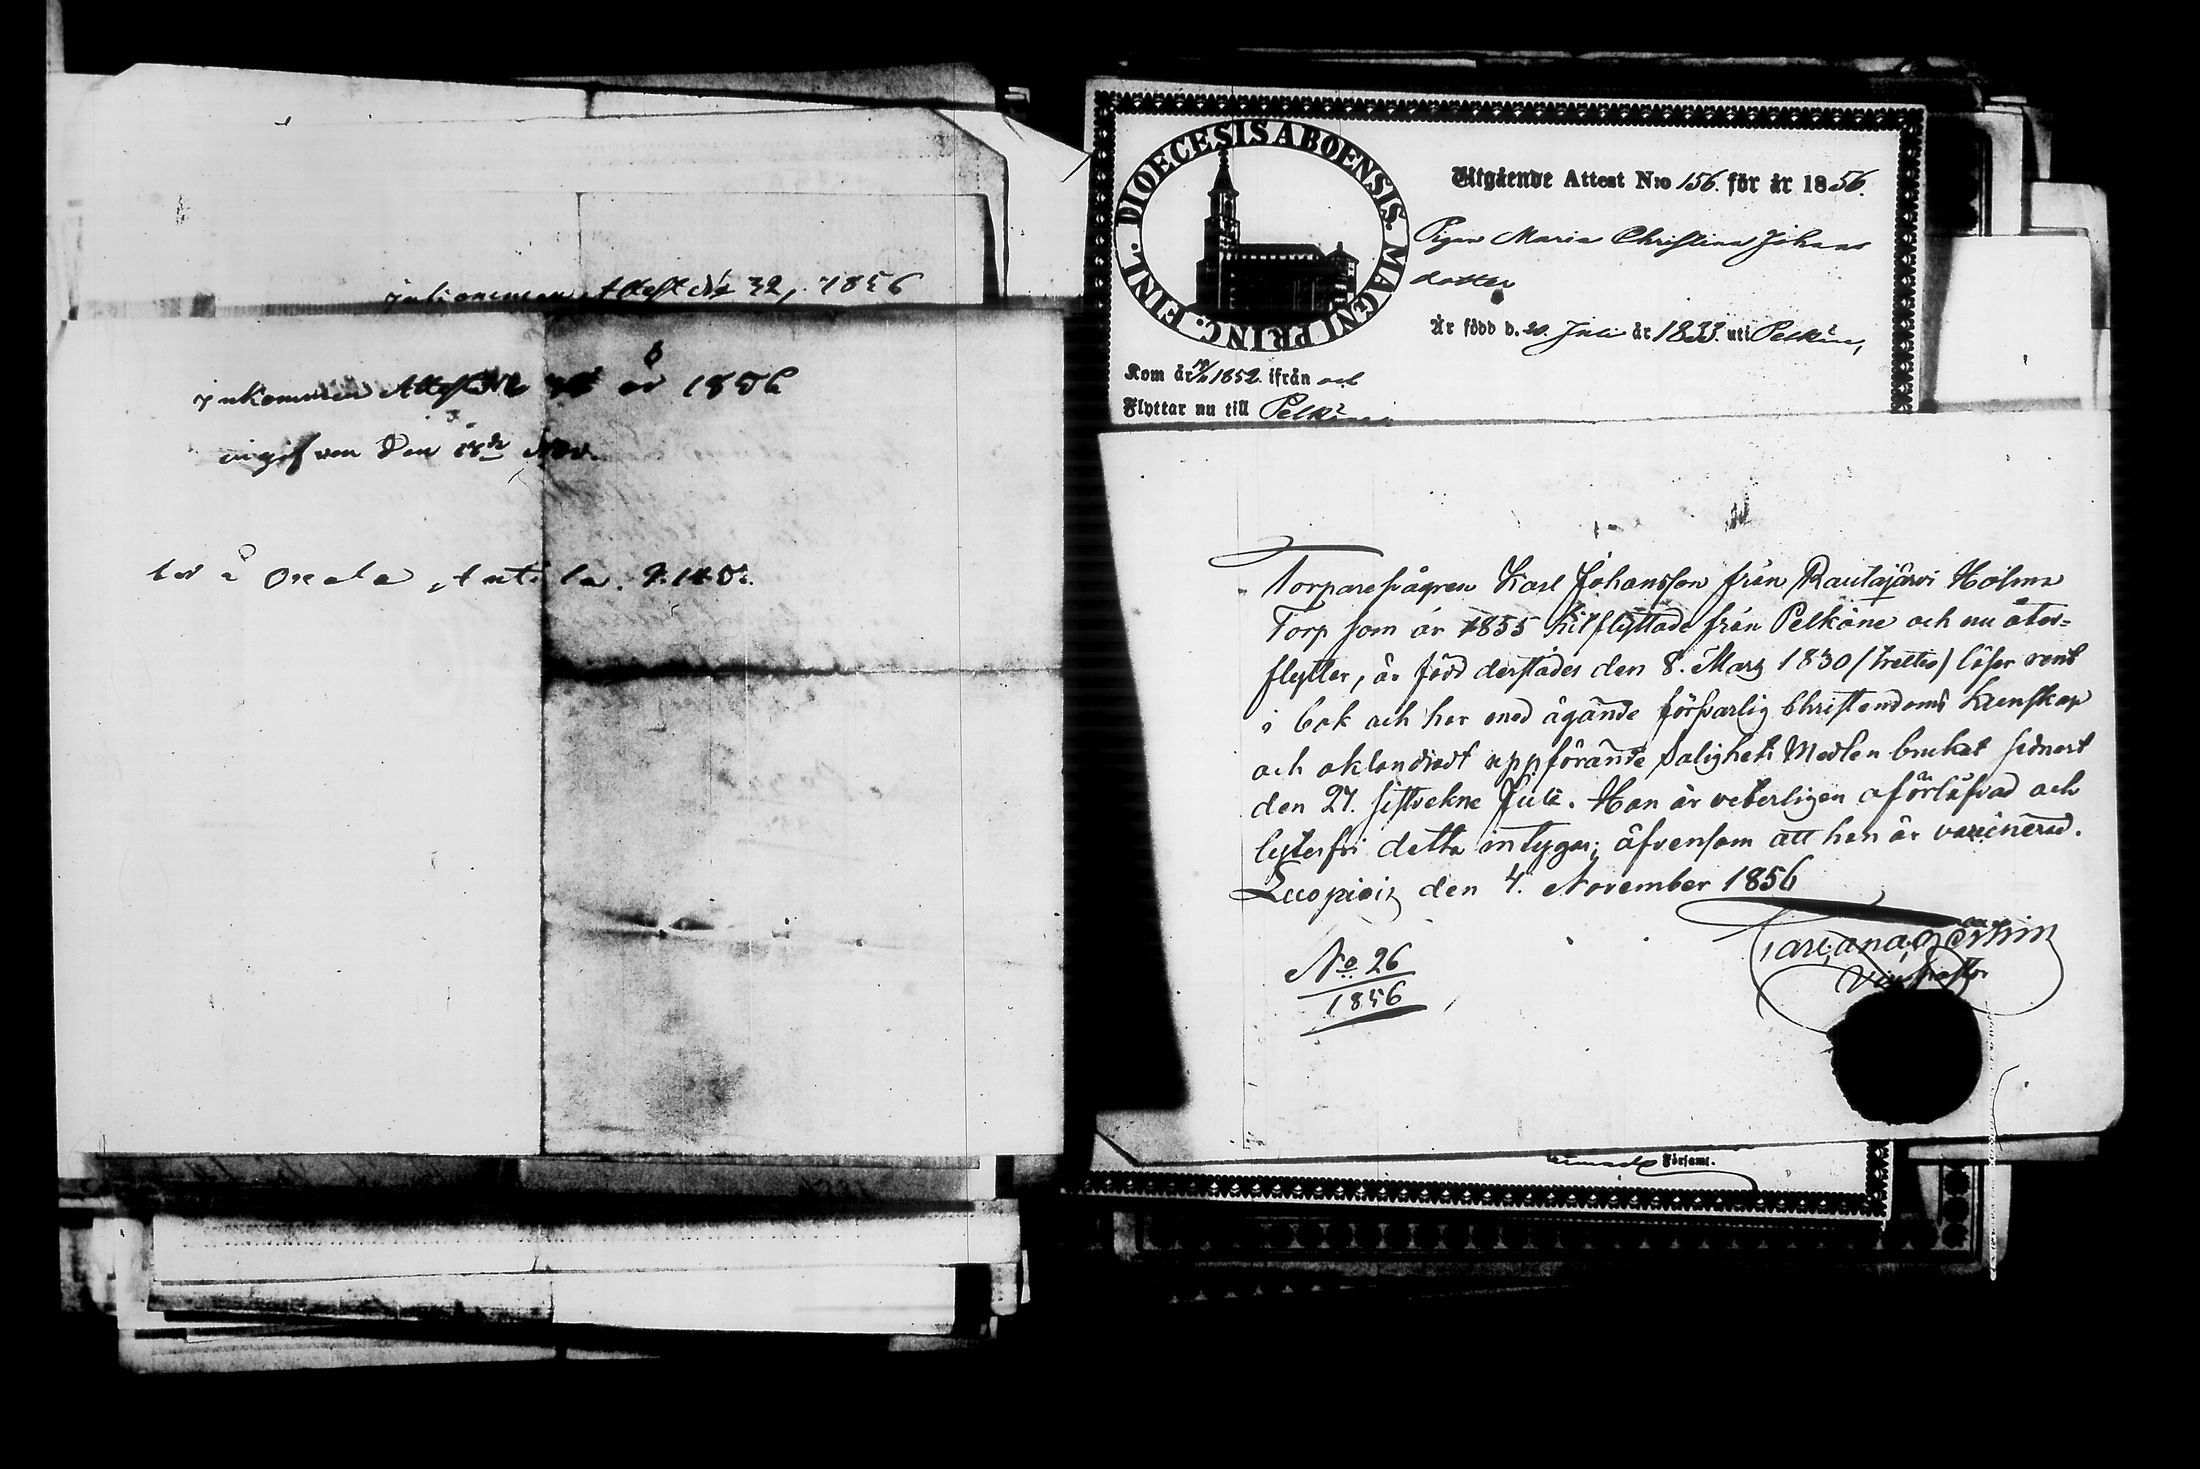 Inkommen Attest No 32, 1856
Inkommen Attest No år 1856
ingifven den 18de Nov.
bor å Onkala Anttila
DIOECESIS ABOENSIS. MAGNI PRINC. FINL.
Utgående Attest N:o 156. för år 1856.
Pigan Maria Christina Johans
dotter
Är född d. 20. Juli år 1833. uti Pelkäne,
Kom år 1852. ifrån och
Flyttar nu till Pelkäne
Torparesvågren Karl Johansson från Rautajärvi Holma
Torp som år 1855 hitflyttade från Pelkäne och nu åter=
flytter, är född derstädes den 8. Mars 1830 (trettio) läser rent
i bok och har med ägande försvarlig Christendoms kunskap
och oklandradt uppförande Salighets Medlen brukat sednast
den 27. sistvekne Juli. Han är veterligen oförlofvad och
lyterfri detta intygar; äfvensom att han är vaccinerad.
Luopiois den 4. November 1856
No 26
1856
Församl.